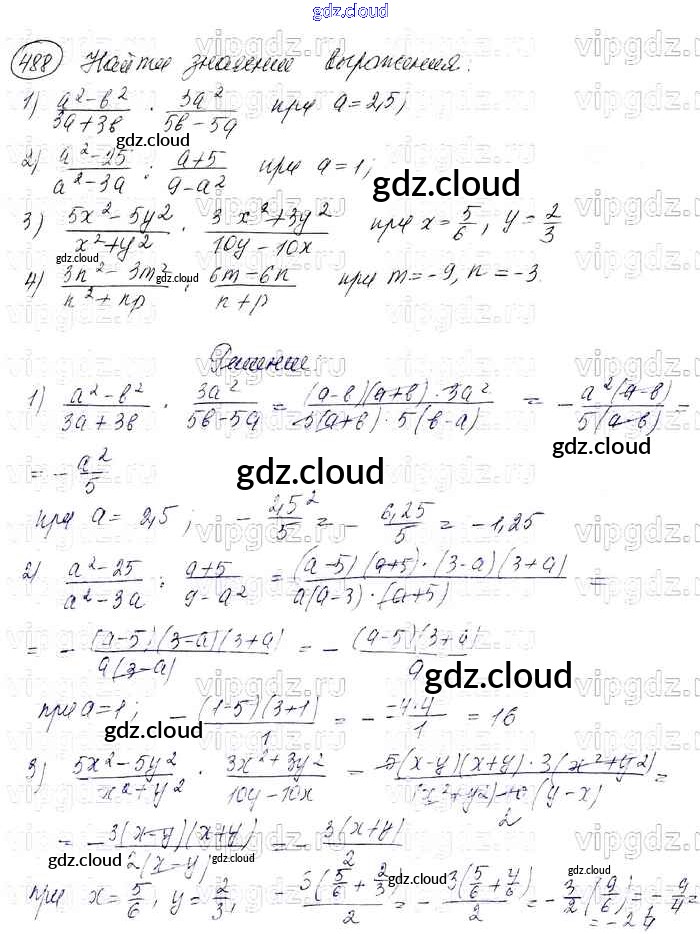 gdz.cloud
gdz.cloud
488 Найти значении выражения.
1) \frac{a^2-b^2}{3a+3b} \cdot \frac{3a^2}{5b-5a} при a=2,5;
gdz.cloud
2) \frac{a^2-25}{a^2-3a} : \frac{a+5}{9-a^2} при a=1;
gdz.cloud
3) \frac{5x^2-5y^2}{x^2+y^2} \cdot \frac{3x^2+3y^2}{10y-10x} при x=\frac{5}{6}, y=\frac{2}{3}
gdz.cloud
4) \frac{3n^2-3m^2}{n^2+np} : \frac{6m-6n}{n+p} при m=-9, n=-3
Решение:
1) \frac{a^2-b^2}{3a+3b} \cdot \frac{3a^2}{5b-5a} = \frac{(a-b)(a+b) \cdot 3a^2}{3(a+b) \cdot 5(b-a)} = -\frac{a^2(a-b)}{5(a-b)} =
gdz.cloud
= -\frac{a^2}{5}
gdz.cloud
при a=2,5; -\frac{2,5^2}{5} = -\frac{6,25}{5} = -1,25
2) \frac{a^2-25}{a^2-3a} : \frac{a+5}{9-a^2} = \frac{(a-5)(a+5) \cdot (3-a)(3+a)}{a(a-3) \cdot (a+5)} =
= -\frac{(a-5)(3-a)(3+a)}{a(3-a)} = -\frac{(a-5)(3+a)}{a}
gdz.cloud
при a=1; -\frac{(1-5)(3+1)}{1} = -\frac{-4 \cdot 4}{1} = 16
gdz.cloud
3) \frac{5x^2-5y^2}{x^2+y^2} \cdot \frac{3x^2+3y^2}{10y-10x} = \frac{5(x-y)(x+y) \cdot 3(x^2+y^2)}{(x^2+y^2) \cdot 10(y-x)} =
2
= -\frac{3(x-y)(x+y)}{2(x-y)} = -\frac{3(x+y)}{2}
gdz.cloud
gdz.cloud
при x=\frac{5}{6}, y=\frac{2}{3}, -\frac{3(\frac{5}{6}+\frac{2}{3})}{2} = -\frac{3(\frac{5}{6}+\frac{4}{6})}{2} = -\frac{3}{2}(\frac{9}{6}) = -\frac{9}{4} =
= -2\frac{1}{4}
gdz.cloud